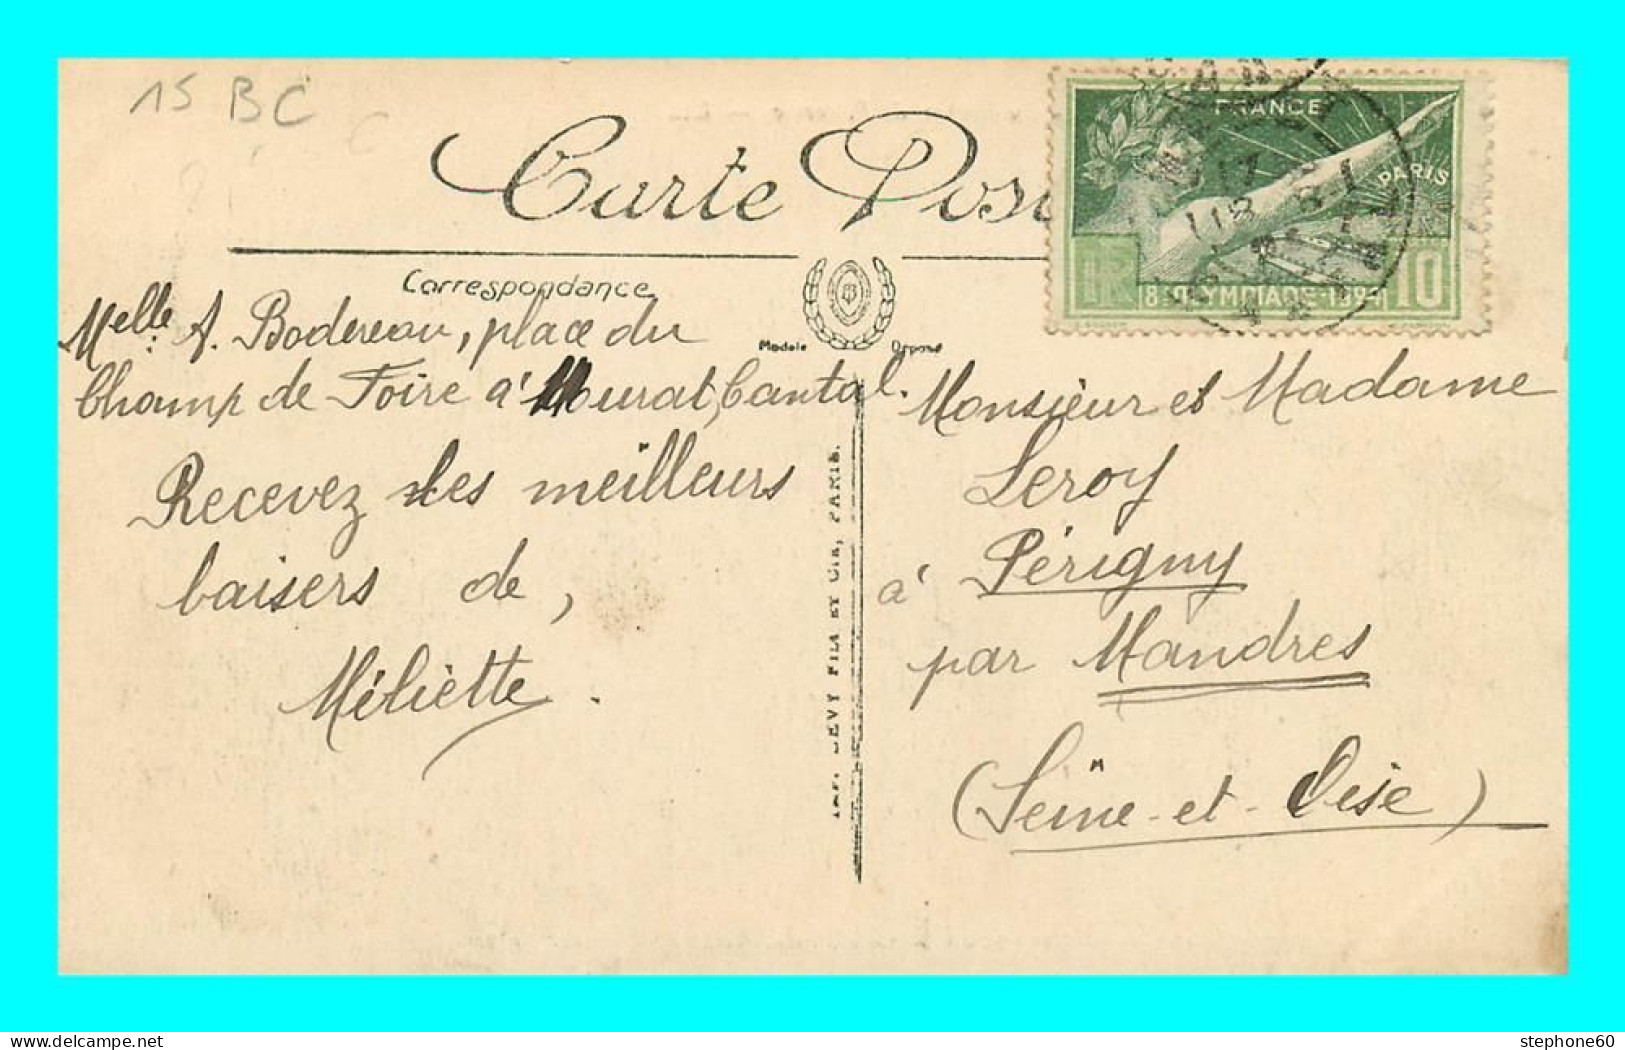 15 BC
Carte Pos
Correspondance
Modèle Déposé
Melle A. Bodereau, place du
Champ de Foire à Murat, Cantal.
Recevez les meilleurs
baisers de,
Méliètte.
IMP. LÉVY FILS ET CIE, PARIS.
FRANCE
PARIS
RF
8e OLYMPIADE-1924
10
Monsieur et Madame
Leroy
à Périgny
par Mandres
(Seine-et-Oise)
stephone60